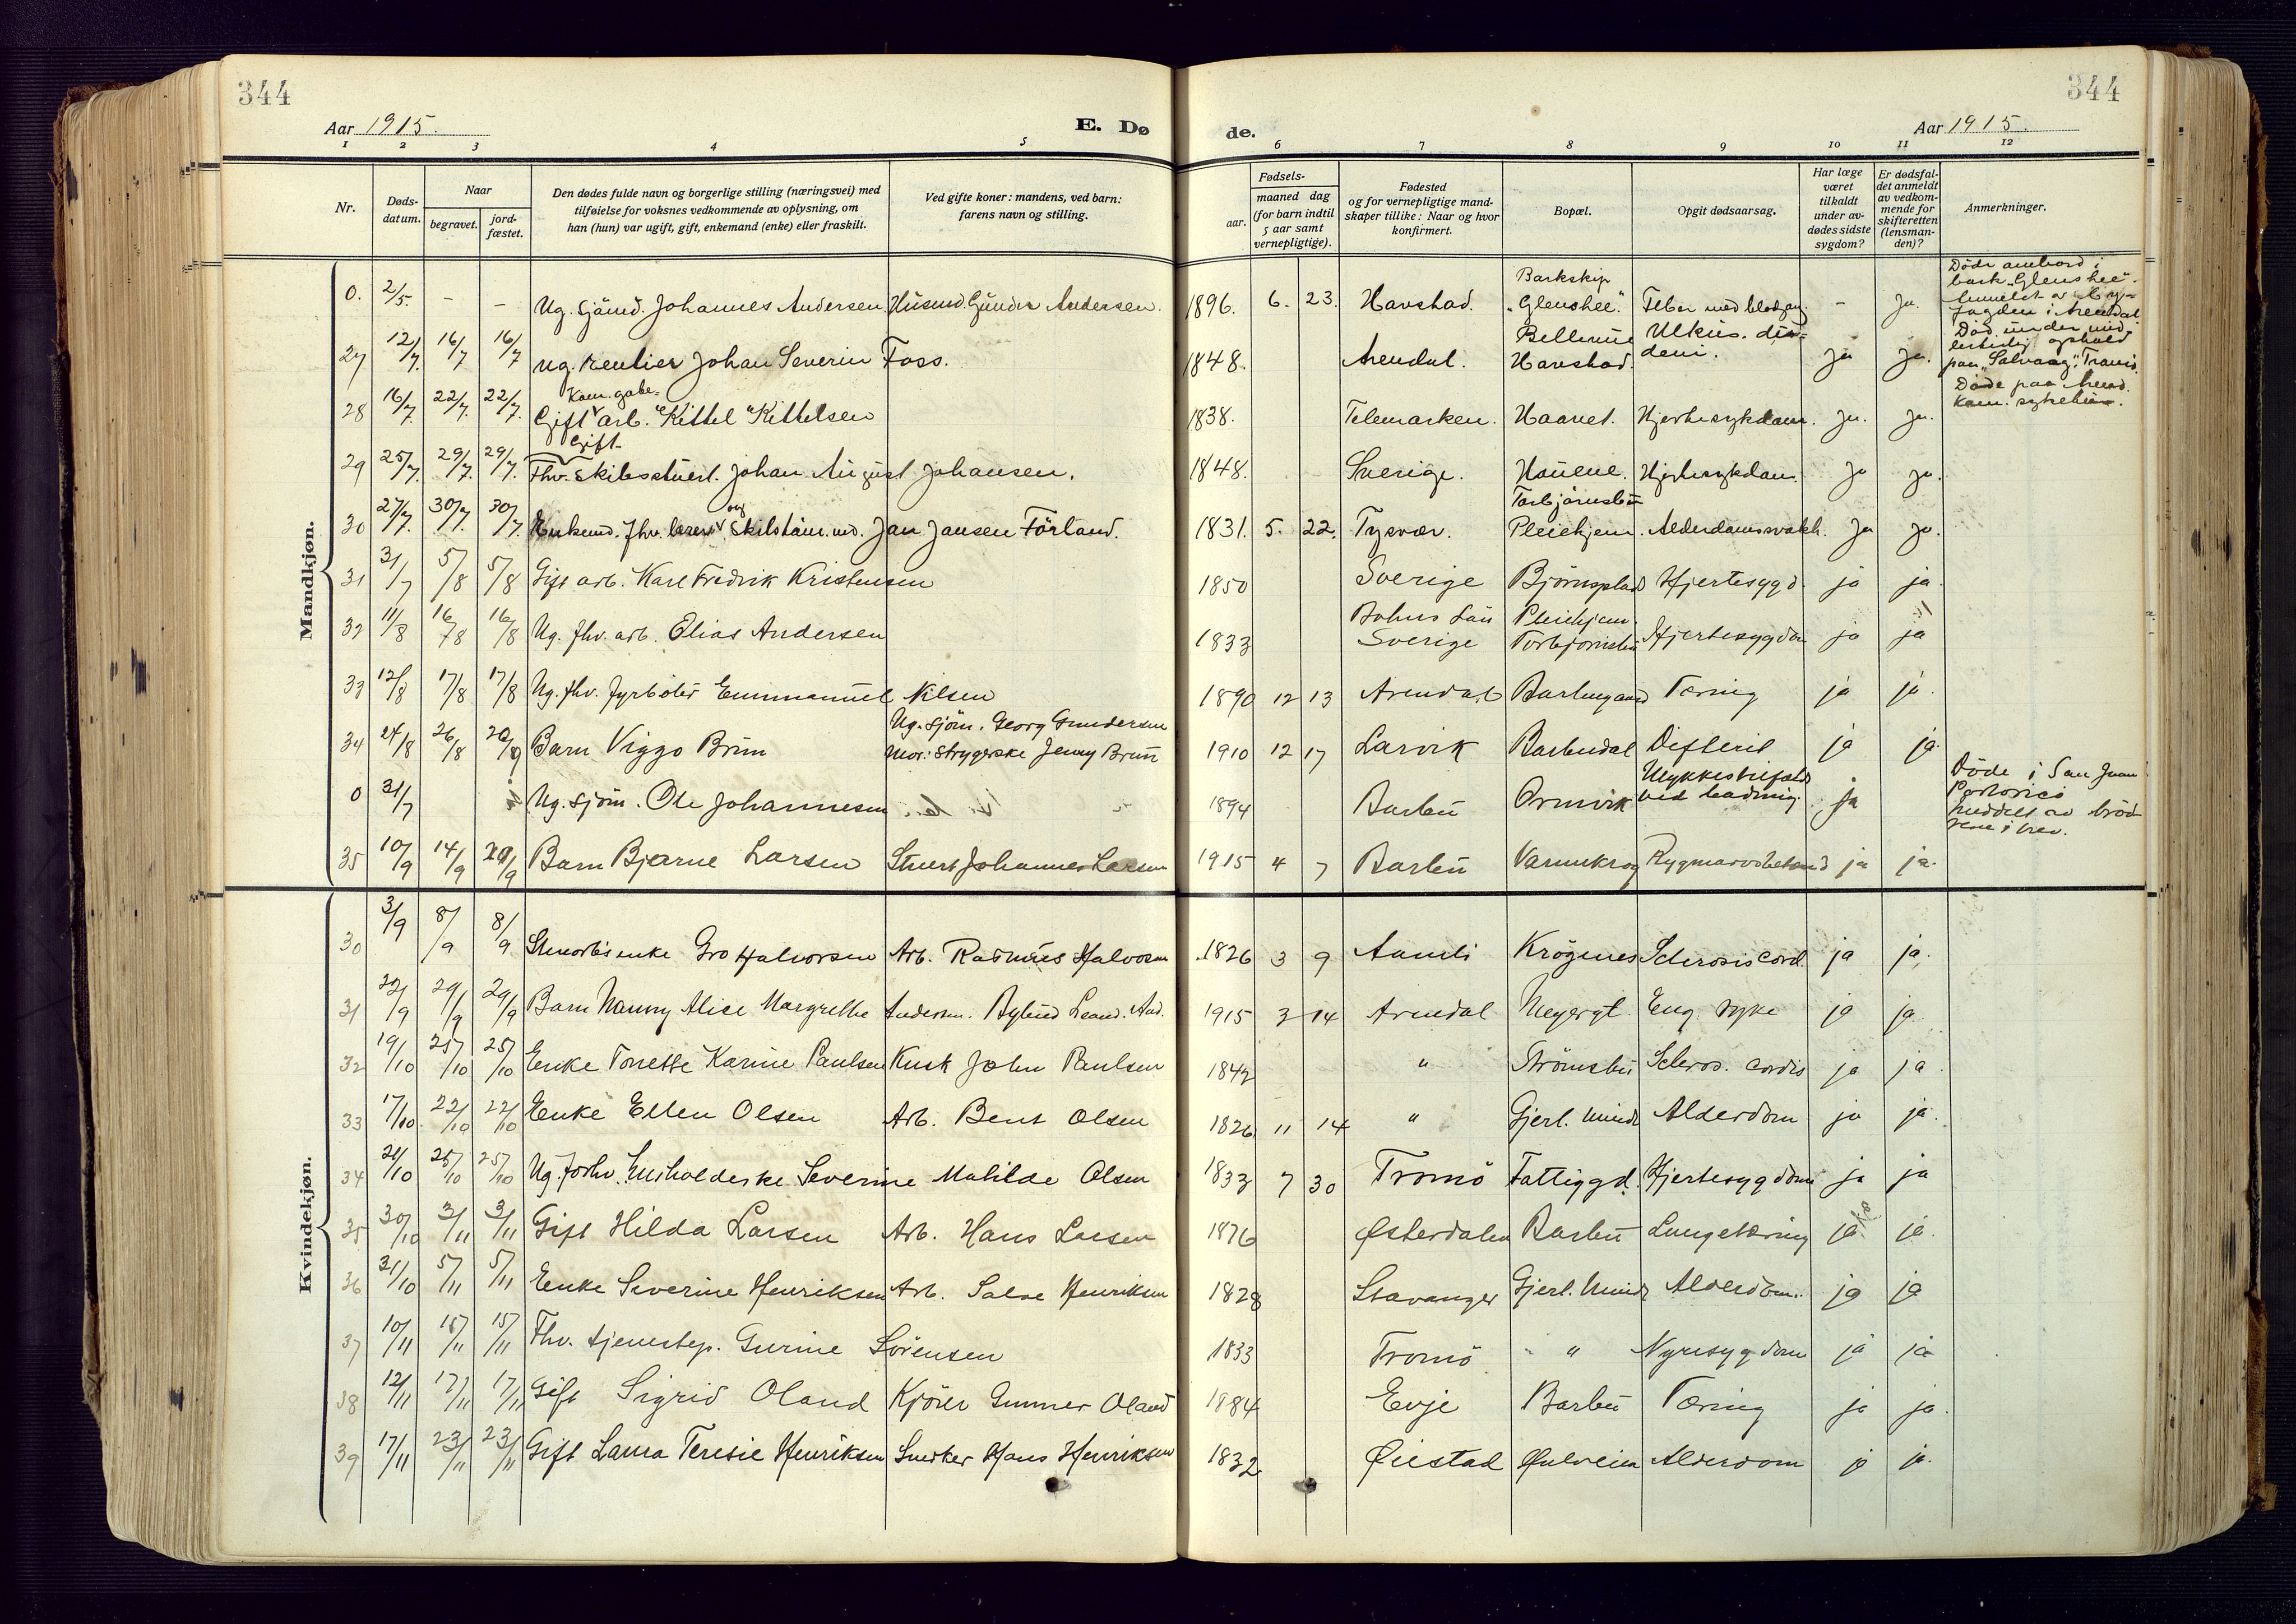 344
344
Aar 1915.
E. Dø
de.
Aar 1915.
1 2 3 4 5 6 7 8 9 10 11 12
Nr.
Døds-
datum.
Naar
begravet.
jord-
fæstet.
Den dødes fulde navn og borgerlige stilling (næringsvei) med
tilføielse for voksnes vedkommende av oplysning, om
han (hun) var ugift, gift, enkemand (enke) eller fraskilt.
Ved gifte koner: mandens, ved barn:
farens navn og stilling.
Fødsels-
aar.
maaned dag
(for barn indtil
5 aar samt
vernepligtige).
Fødested
og for vernepligtige mand-
skaper tillike: Naar og hvor
konfirmert.
Bopæl.
Opgit dødsaarsag.
Har læge
været
tilkaldt
under av-
dødes sidste
sygdom?
Er dødsfal-
det anmeldt
av vedkom-
mende for
skifteretten
(lensman-
den)?
Anmerkninger.
Mandkjøn.
0. 2/5. - - Ug. Sjömd. Johannes Andersen Husmd. Gunder Andersen. 1896. 6. 23. Havstad. Barkskip "Glenshee." Feber med blodgang - Ja. Döde ombord i bark "Glenshee".
27 12/7. 16/7 16/7 Ug. rentier Johan Severin Foss. 1848. Arendal. Bellevue Havstad. Ulkus. duodeni. Ja Ja. Död under midlertidig ophold paa
28 16/7. 22/7. 22/7. Gift arb. Kittel Kittelsen 1838. Telemarken. Haavet. Hjertesykdom. Ja. Ja. Döde paa Arend. Kom. sykehus.
29 25/7. 29/7. 29/7. Gift Fhv. Skibsstuert. Johan August Johansen. 1848. Sverige. Hauene. Hjertesykdom. Ja Ja.
30 27/7. 30/7. 30/7. Enkemd. fhv. lærer og Skibstöm.md. Jan Jansen Förland. 1831. 5. 22. Tysvær. Torbjörnsbu Pleiehjem. Alderdomssvakh. Ja Ja.
31 31/7 5/8 5/8 Gift arb. Karl Fredrik Kristensen 1850 Sverige Björnsplads Hjertesygd. ja ja.
32 11/8 16/8 16/8 Ug. fhv. arb. Elias Andersen 1833 Bohus Län Sverige Pleiehjem Torbjörnsbu Hjertesygdom ja ja
33 12/8 17/8 17/8 Ug. fhv. fyrböter Emmanuel Nilsen 1890 12 13 Arendal Tæring ja ja.
34 24/8 26/8 Barn Viggo Brun Ug. sjöm. Georg Gundersen Mor: strygerske Jenny Brun 1910 12 17 Larvik Barbudal Difterit ja ja.
0 31/7 Ug. sjöm. Ole Johannesen 1894 Barbu Ormvik Ulykkestilfælde ved ladning. ja Döde i San Juan Portorico meddelt av brödrene i brev.
35 10/9 14/9 Barn Bjarne Larsen Stuert Johannes Larsen 1915 4 7 Barbu Varmekrog Rygmarvsbetænd ja ja.
Kvindekjøn.
30 3/9 8/9 8/9 enke Gro Halvorsen Arb. Rasmus Halvorsen 1826 3 9 Aamli Krögenes Sclerosis cord. ja ja.
31 22/9 29/9 29/9 Barn Nanny Alice Margrethe Andersen. 1915 3 14 Arendal Meyergt. Eng. syke ja ja.
32 19/10 25/10 25/10 Enke Torette Karine Paulsen Kusk John Paulsen 1842 " Strömsbu Scleros. cordis ja ja
33 17/10. 22/10 22/10 Enke Ellen Olsen Arb. Bent Olsen 1826 11 14 " Gjerl. Minde Alderdom ja ja.
34 21/10 25/10 25/10 Ug. forhv. husholderske Severine Matilde Olsen 1833 7 30 Tromö Fattiggd. Hjertesygdom ja ja
35 30/10 3/11 3/11 Gift Hilda Larsen Arb. Hans Larsen 1876 Østerdalen Barbu Lungetæring ja. ja.
36 31/10 5/11 5/11 Enke Severine Henriksen Arb. Salve Henriksen 1828 Stavanger Gjerl. Minde Alderdom. ja ja
37 10/11 15/11 15/11 Fhv. tjenestep. Gurine Sörensen 1833 Tromö " Nyresygdom ja ja
38 12/11 17/11 17/11 Gift Sigrid Oland Kjörer Gunner Oland 1884 Evje Barbu Tæring ja ja.
39 17/11 23/11 23/11 Gift Laura Teresie Henriksen Snerker Hans Henriksen 1832 Øiestad Alderdom ja ja.